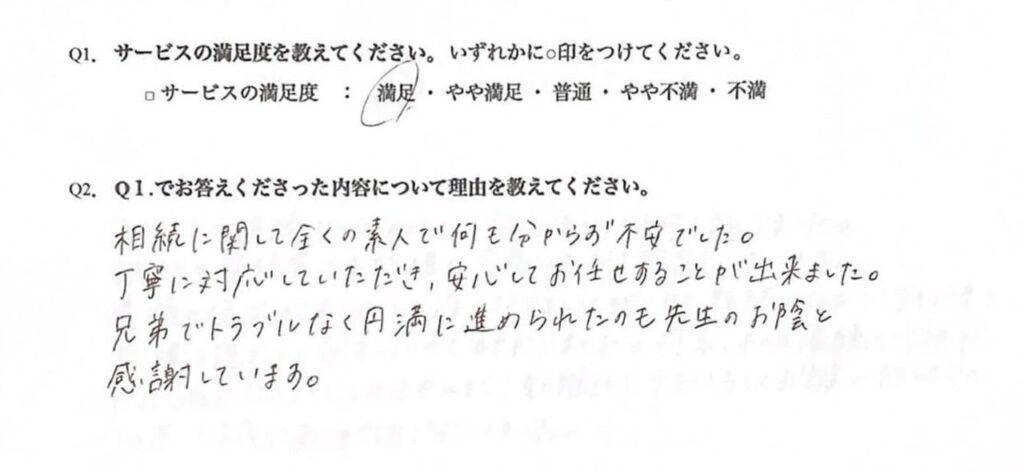 Q1. サービスの満足度を教えてください。いずれかに○印をつけてください。
□ サービスの満足度 : 満足・やや満足・普通・やや不満・不満
Q2. Q1.でお答えくださった内容について理由を教えてください。
相続に関して全くの素人で何も分からず不安でした。
丁寧に対応していただき、安心してお任せすることが出来ました。
兄弟でトラブルなく円満に進められたのも先生のお陰と
感謝しています。